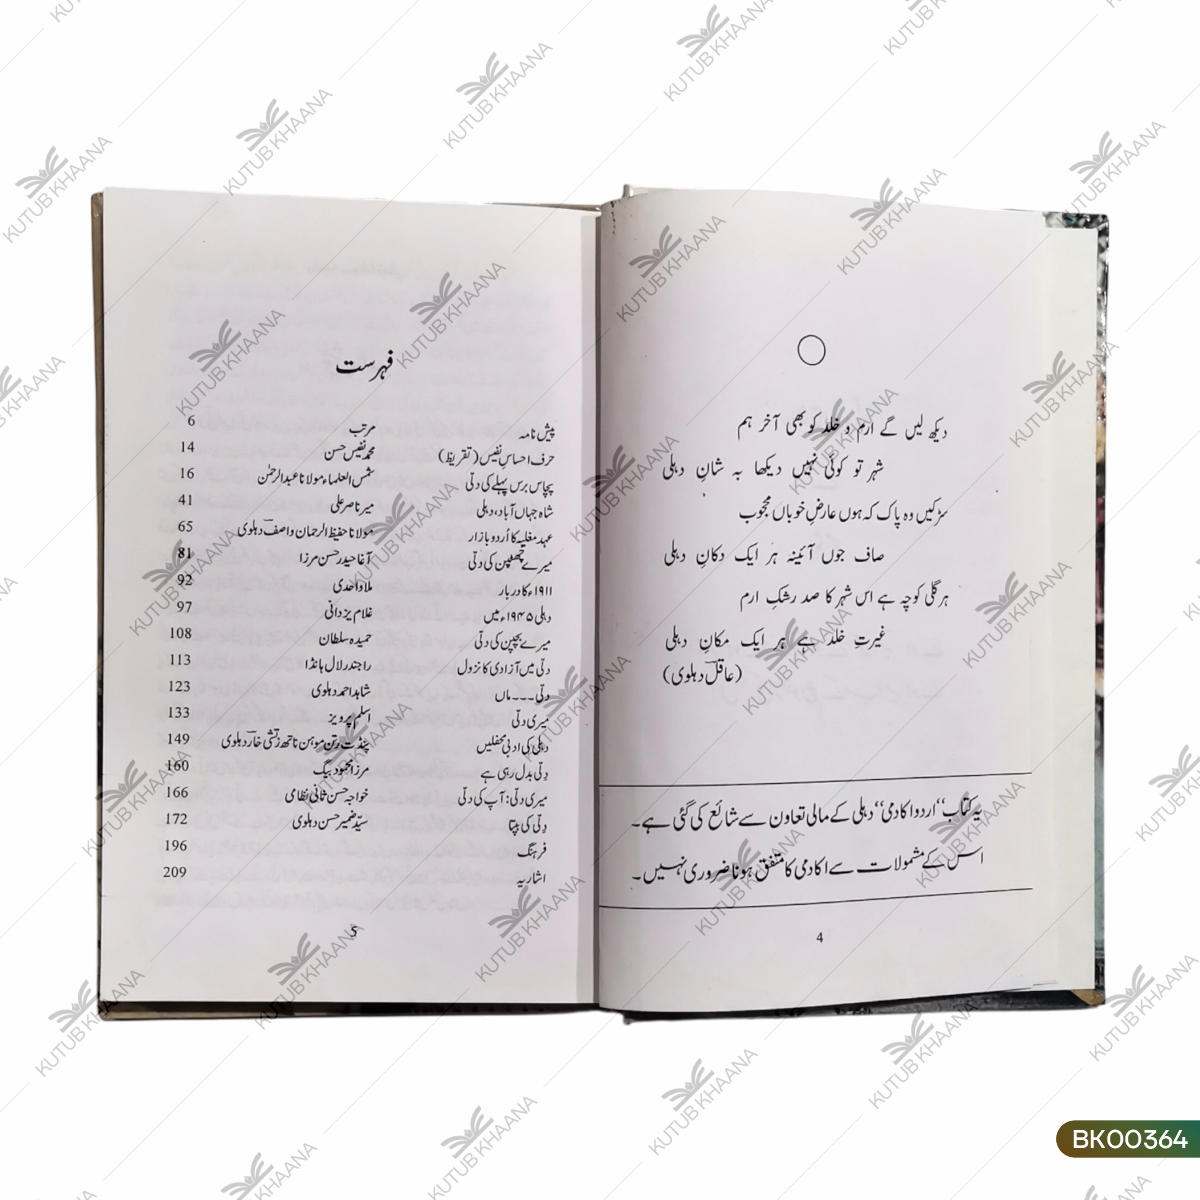 دیکھ لیں گے ارم و خلد کو بھی آخر ہم
شہر تو کوئی نہیں دیکھا بہ شانِ دہلی
سڑکیں وہ پاک کہ ہوں عارضِ خوباں محجوب
صاف جوں آئینہ ہر ایک دکانِ دہلی
ہر گلی کوچہ ہے اس شہر کا صد رشکِ ارم
غیرتِ خلد ہے ہر ایک مکانِ دہلی
(عاقلؔ دہلوی)
یہ کتاب "اردو اکادمی" دہلی کے مالی تعاون سے شائع کی گئی ہے۔
اس کے مشمولات سے اکادمی کا متفق ہونا ضروری نہیں۔
4
فہرست
پیش نامہ مرتب 6
حرف احساسِ نفیس (تقریظ) محمد نفیس حسن 14
پچاس برس پہلے کی دلّی شمس العلماء مولانا عبدالرحمٰن 16
شاہ جہاں آباد، دہلی میر ناصر علی 41
عہد مغلیہ کا اُردو بازار مولانا حفیظ الرحمان واصفؔ دہلوی 65
میرے چھٹپن کی دلّی آغا حیدر حسن مرزا 81
۱۹۱۱ء کا دربار ملا واحدی 92
دہلی ۱۹۴۵ء میں غلام یزدانی 97
میرے بچپن کی دلّی حمیدہ سلطان 108
دلّی میں آزادی کا نزول راجندر لال ہانڈا 113
دلّی۔۔۔ماں شاہد احمد دہلوی 123
میری دلّی اسلم پرویز 133
دہلی کی ادبی محفلیں پنڈت رتن موہن ناتھ زتشی خارؔ دہلوی 149
دِلّی بدل رہی ہے مرزا محمود بیگ 160
میری دلّی: آپ کی دلّی خواجہ حسن ثانی نظامی 166
دِلّی کی بپتا سیّد ضمیر حسن دہلوی 172
فرہنگ 196
اشاریہ 209
5
KUTUB KHAANA
BK00364